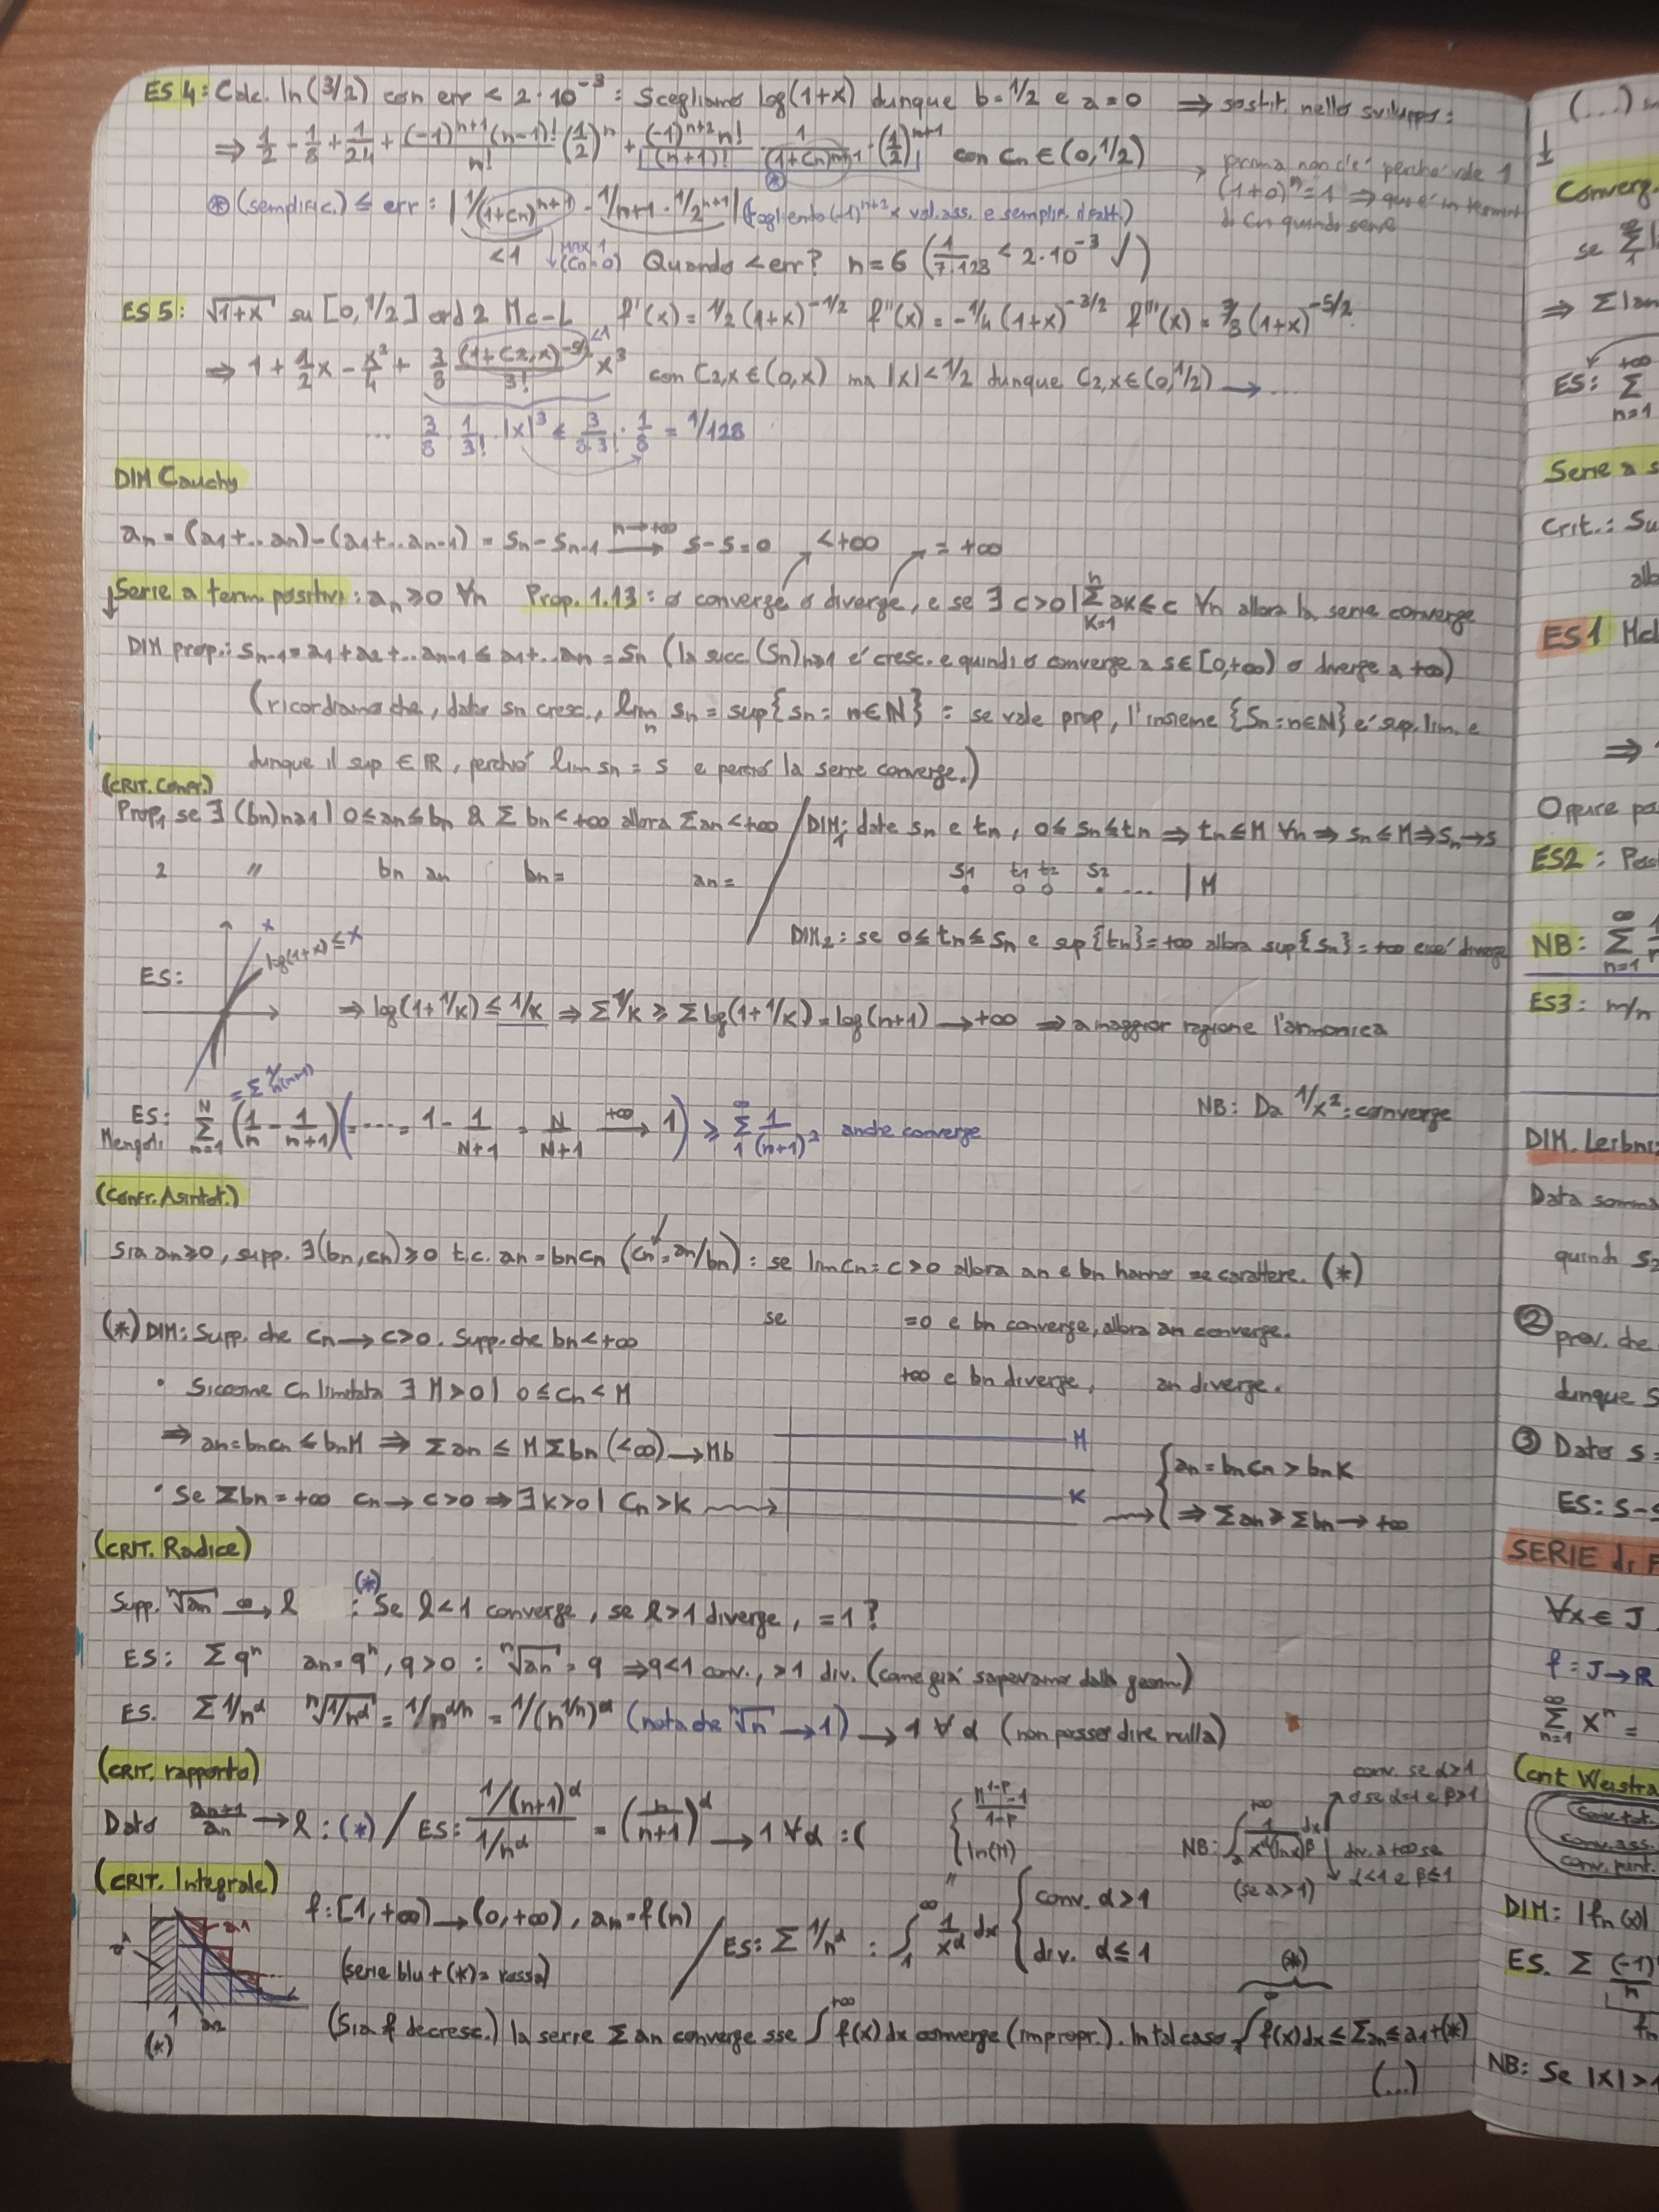 ES 4: Calc. ln(3/2) con err < 2·10^-3 : Scegliamo log(1+x) dunque b=1/2 e a=0 ⇒ sostit. nello sviluppo:
⇒ 1/2 - 1/8 + 1/24 + (-1)^{n+1}(n-1)!/n! (1/2)^n + (-1)^{n+2} n!/(n+1)! · 1/(1+Cn)^{n+1} · (1/2)^{n+1} con Cn ∈ (0,1/2)
→ prima non c'è perché vale 1
(1+0)^n = 1 ⇒ qui è in termini
di Cn quando serve
⊛ (semplific.) ≤ err: |1/(1+Cn)^{n+1} · 1/n+1 · 1/2^{n+1}| (togliento (-1)^{n+2} x val.ass. e semplif. i fatt.)
<1 ↓ MAX 1 (Cn=0) Quando < err? n=6 (1/7·128 < 2·10^-3 ✓)
ES 5: √1+x su [0,1/2] ord 2 Mc-L f'(x) = 1/2 (1+x)^{-1/2} f''(x) = -1/4 (1+x)^{-3/2} f'''(x) = 3/8 (1+x)^{-5/2}
⇒ 1 + 1/2 x - x²/4 + 3/8 (1+C2,x)^{-5/2}/3! x³ <1 con C2,x ∈ (0,x) ma |x| < 1/2 dunque C2,x ∈ (0,1/2) → ...
... 3/8 · 1/3! · |x|³ ≤ 3/8·3! · 1/8 = 1/128
DIM Cauchy
an = (a1+..an)-(a1+..an-1) = sn - sn-1 →^{n→+∞} s-s=0 <+∞ =+∞
↓ Serie a term. positivi: an ≥ 0 ∀n Prop. 1.13: o converge o diverge, e se ∃ c>0 | Σ_{k=1}^{n} ak ≤ c ∀n allora la serie converge
DIM prop.: sn-1 = a1+a2+..an-1 ≤ a1+..an = sn (la succ. (sn)n≥1 é cresc. e quindi o converge a s∈[0,+∞) o diverge a +∞)
(ricordiamo che, dator sn cresc., lim_n sn = sup{sn : n∈N} : se vale prop, l'insieme {sn : n∈N} é sup. lim. e
dunque il sup ∈ R, perché lim sn = s e perciò la serie converge.)
(CRIT. Confr.)
Prop1 se ∃ (bn)n≥1 | 0≤an≤bn & Σ bn < +∞ allora Σ an < +∞ / DIM1: date sn e tn, 0≤ sn ≤ tn ⇒ tn ≤ M ∀n ⇒ sn ≤ M ⇒ sn → s
2 " bn an bn= an= s1 t1 t2 s2 .... | M
DIM2: se 0≤ tn ≤ sn e sup{tn} = +∞ allora sup{sn} = +∞ cioé diverge
ES: x log(1+x) ≤ x
⇒ log(1+1/k) ≤ 1/k ⇒ Σ 1/k ≥ Σ log(1+1/k) = log(n+1) → +∞ ⇒ a maggior ragione l'armonica
= Σ 1/n(n+1)
ES: Mengoli Σ_{n=1}^{N} (1/n - 1/n+1) (=....= 1 - 1/N+1 = N/N+1 →^{+∞} 1) ≥ Σ_1^∞ 1/(n+1)² anche converge
NB: Da 1/x² : converge
(Confr. Asintot.)
Sia an≥0, supp. ∃(bn,cn)≥0 t.c. an = bncn (cn = an/bn) : se lim cn = c>0 allora an e bn hanno se carattere. (*)
se =0 e bn converge, allora an converge.
+∞ e bn diverge, an diverge.
(*) DIM: Supp. che cn → c>0. Supp. che bn < +∞
• Siccome cn limitata ∃ M>0 | 0 ≤ cn < M
⇒ an = bncn ≤ bnM ⇒ Σ an ≤ M Σ bn (<∞) → Mb
M
• Se Σ bn = +∞ cn → c>0 ⇒ ∃ k>0 | cn > k
K
{ an = bncn > bnK
⇒ Σ an ≥ Σ bn → +∞
(CRIT. Radice)
Supp. ⁿ√an →^∞ l : (*) Se l<1 converge, se l>1 diverge, =1 ?
ES: Σ q^n an = q^n, q>0 : ⁿ√an = q ⇒ q<1 conv., >1 div. (come già sapevamo dalla geom.)
ES. Σ 1/n^α ⁿ√1/n^α = 1/n^{α/n} = 1/(n^{1/n})^α (nota che ⁿ√n → 1) → 1 ∀ α (non posso dire nulla)
(CRIT. rapporto)
Dato an+1/an → l : (*) / ES: 1/(n+1)^α / 1/n^α = (n/n+1)^α → 1 ∀α :(
{ M^{1-p}-1/1-p
ln(M)
NB: ∫_2^{+∞} 1/x^α(lnx)^β dx
(se α>1)
conv. se α>1
o se α=1 e β>1
div. a +∞ se
α<1 e β≤1
(CRIT. Integrale)
f: [1,+∞) → (0,+∞), an = f(n)
(serie blu + (*) = rossa)
/ ES: Σ 1/n^α : ∫_1^∞ 1/x^α dx { conv. α>1
div. α ≤ 1
a1
1 a2
(*)
(Sia f decresc.) la serie Σ an converge sse ∫^{+∞} f(x) dx converge (impropr.). In tal caso ∫^∞ f(x)dx ≤ Σ an ≤ a1 + (*)
(*)
(...)
(...)
↓
Converg.
se
⇒ Σ |an
ES: Σ_{n=1}^{+∞}
Serie a s
Crit.: Su
ES1
⇒
Oppure po
ES2 : Pos
NB: Σ_{n=1}^{∞}
ES3: m/n
DIM. Leibniz
Data somma
quindi S2
② prov. che
dunque S
③ Dato s =
ES: s-s
SERIE di F
∀x ∈ J
f : J → R
Σ_{n=1}^{∞} x^n =
(crit Weistra
conv. tot.
conv. ass.
conv. punt.
DIM: |fn(x)|
ES. Σ (-1)/n
fn
NB: Se |x| > 1